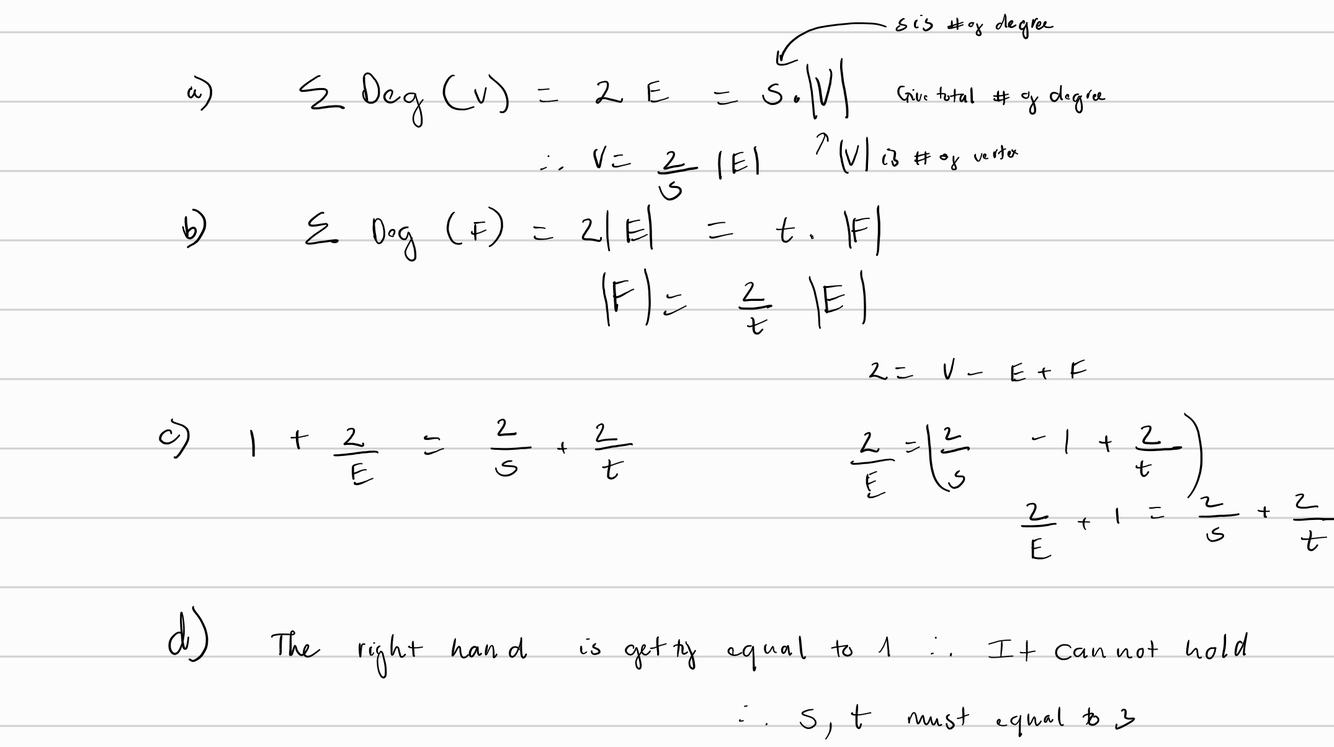 s is # of degree
a) Σ Deg (v) = 2 E = s.|V| Give total # of degree
∴ V = 2/s |E| ↑ |V| is # of vertex
b) Σ Deg (F) = 2|E| = t. |F|
|F| = 2/t |E|
2 = V - E + F
c) 1 + 2/E = 2/s + 2/t 2/E = (2/s - 1 + 2/t)
2/E + 1 = 2/s + 2/t
d) The right hand is equal to 1 ∴ It cannot hold
∴ s, t must equal to 3